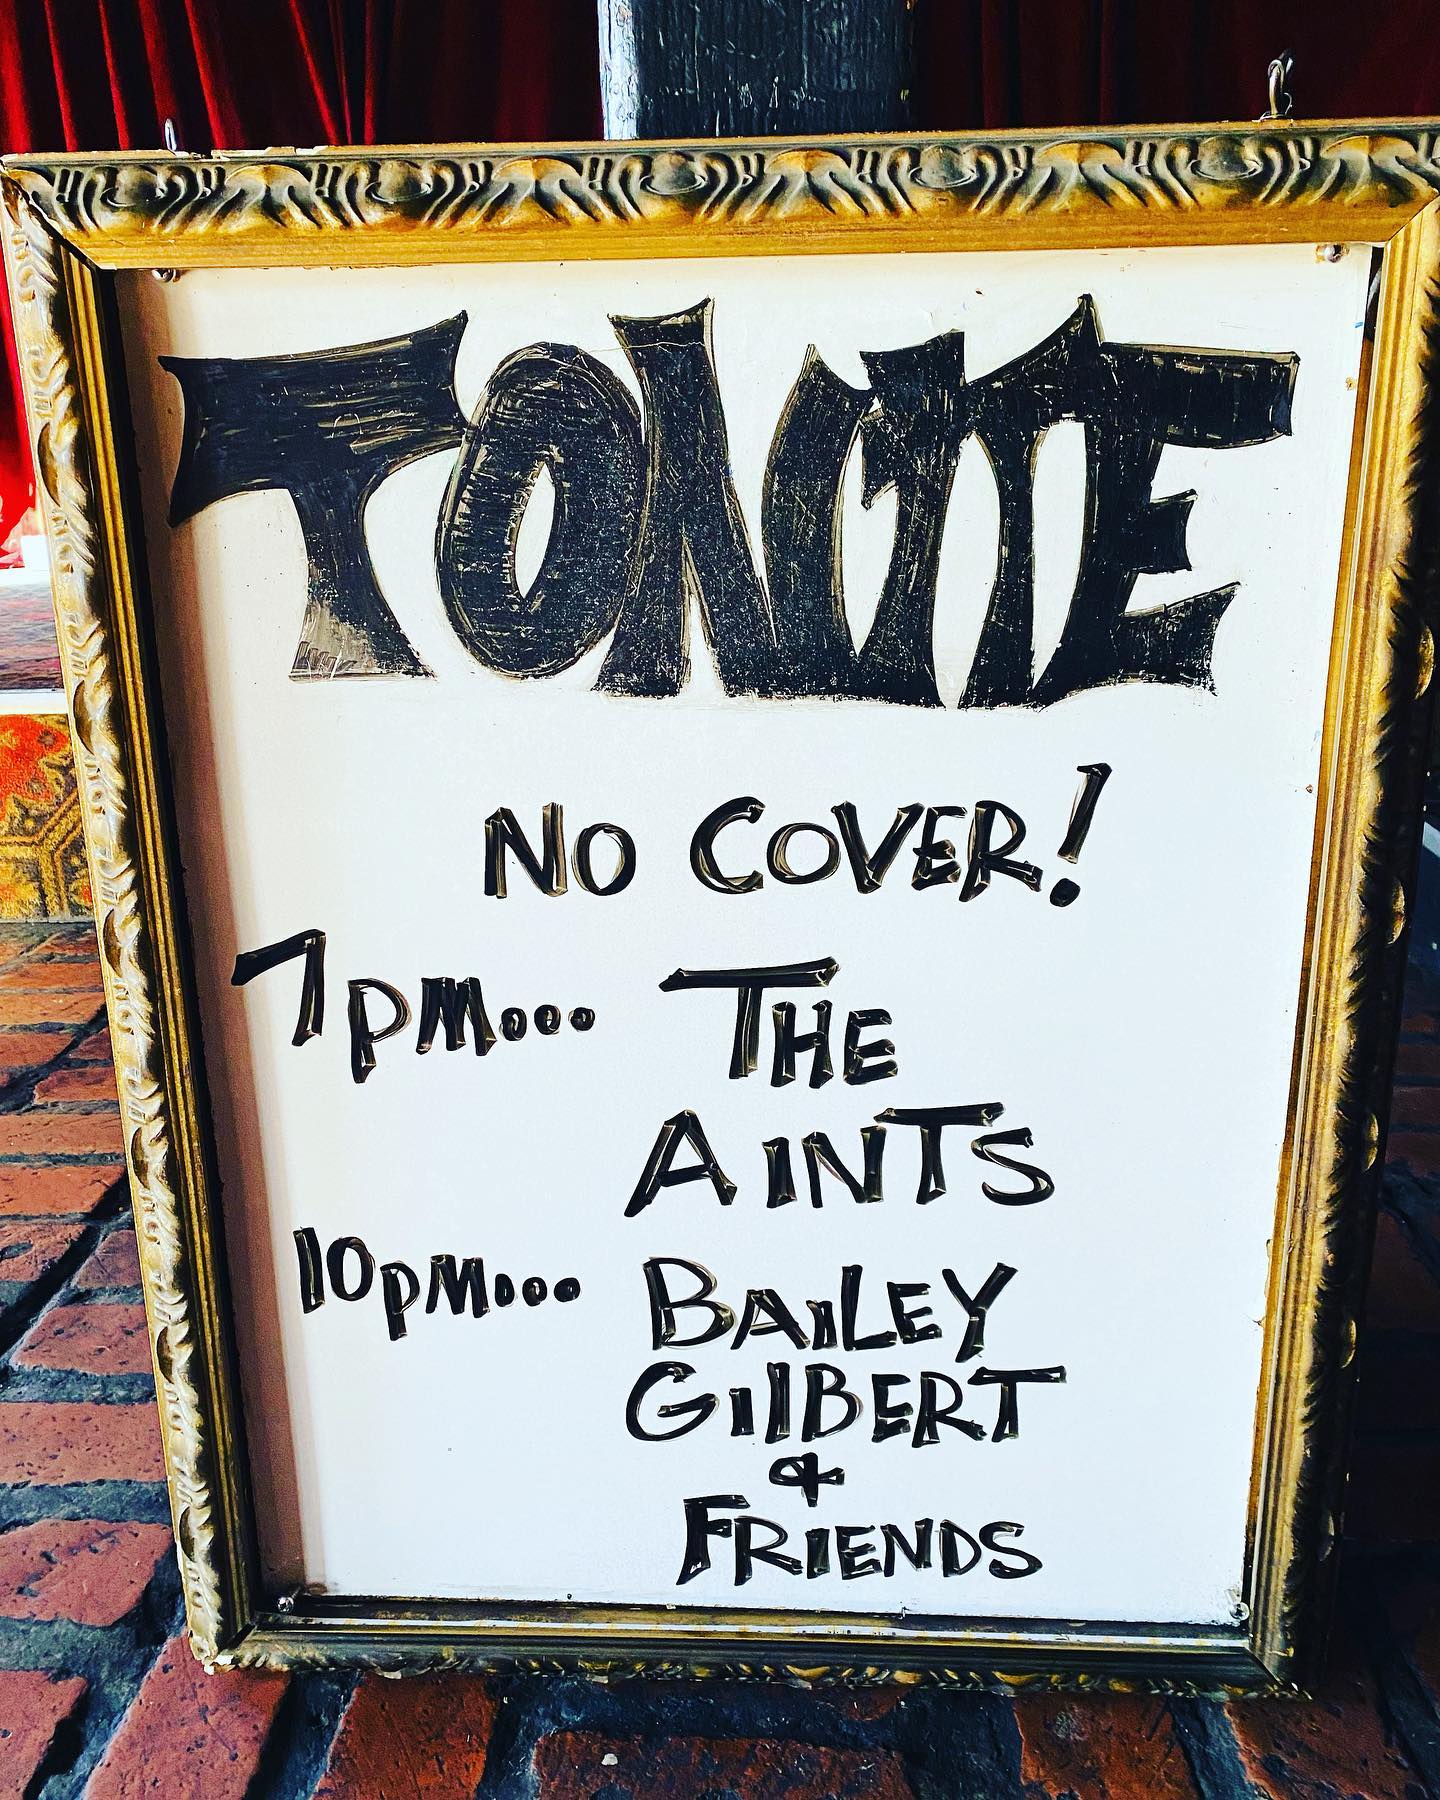 TONITE
NO COVER!
7PM... THE
AINTS
10PM... BAILEY
GILBERT
&
FRIENDS